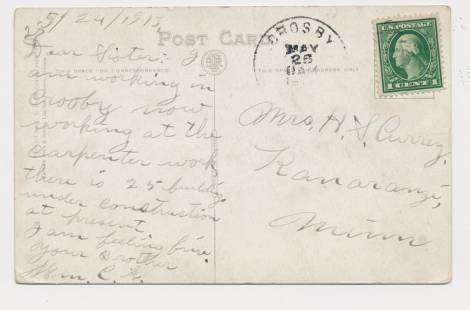 5/24/1913
POST CARD
Dear Sister: I
am working in
Crosby now
working at the
Carpenter work
there is 25 building
under construction
at present.
I am feeling fine.
your Brother
Wm. C. G.
THIS SPACE FOR CORRESPONDENCE
CROSBY
MAY
26
U.S. POSTAGE
1 CENT 1
Mrs. H. S. Currey,
Kanaranzi,
Minn